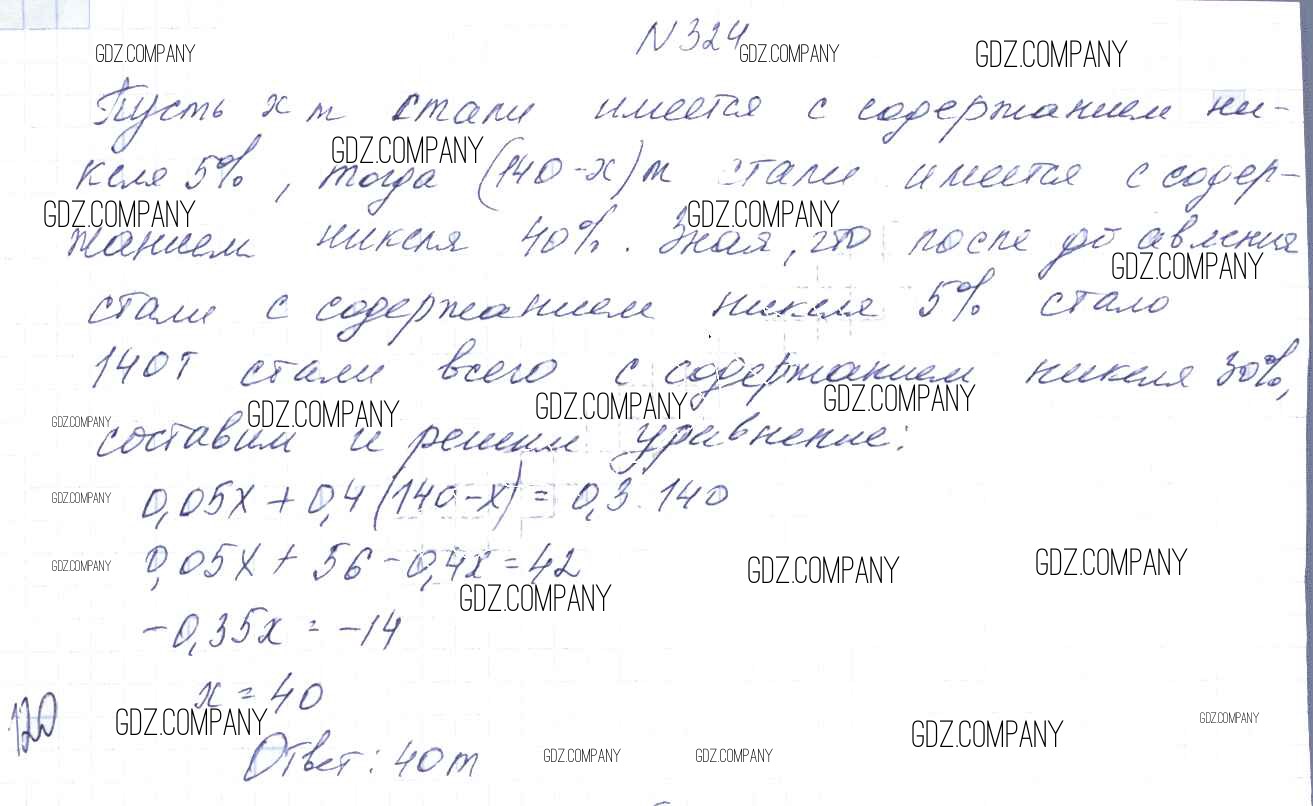 N324
GDZ.COMPANY GDZ.COMPANY GDZ.COMPANY
Пусть x т стали имеется с содержанием ни-
GDZ.COMPANY
келя 5%, тогда (140-x)т стали имеется с содер-
GDZ.COMPANY GDZ.COMPANY
жанием никеля 40%. Зная, что после до авления
GDZ.COMPANY
стали с содержанием никеля 5% стало
140т стали всего с содержанием никеля 30%,
GDZ.COMPANY GDZ.COMPANY GDZ.COMPANY GDZ.COMPANY
составим и решим уравнение:
GDZ.COMPANY
0,05x + 0,4(140-x) = 0,3·140
GDZ.COMPANY GDZ.COMPANY GDZ.COMPANY
0,05x + 56 - 0,4x = 42
GDZ.COMPANY
-0,35x = -14
x = 40
120
GDZ.COMPANY GDZ.COMPANY GDZ.COMPANY
Ответ: 40т
GDZ.COMPANY GDZ.COMPANY